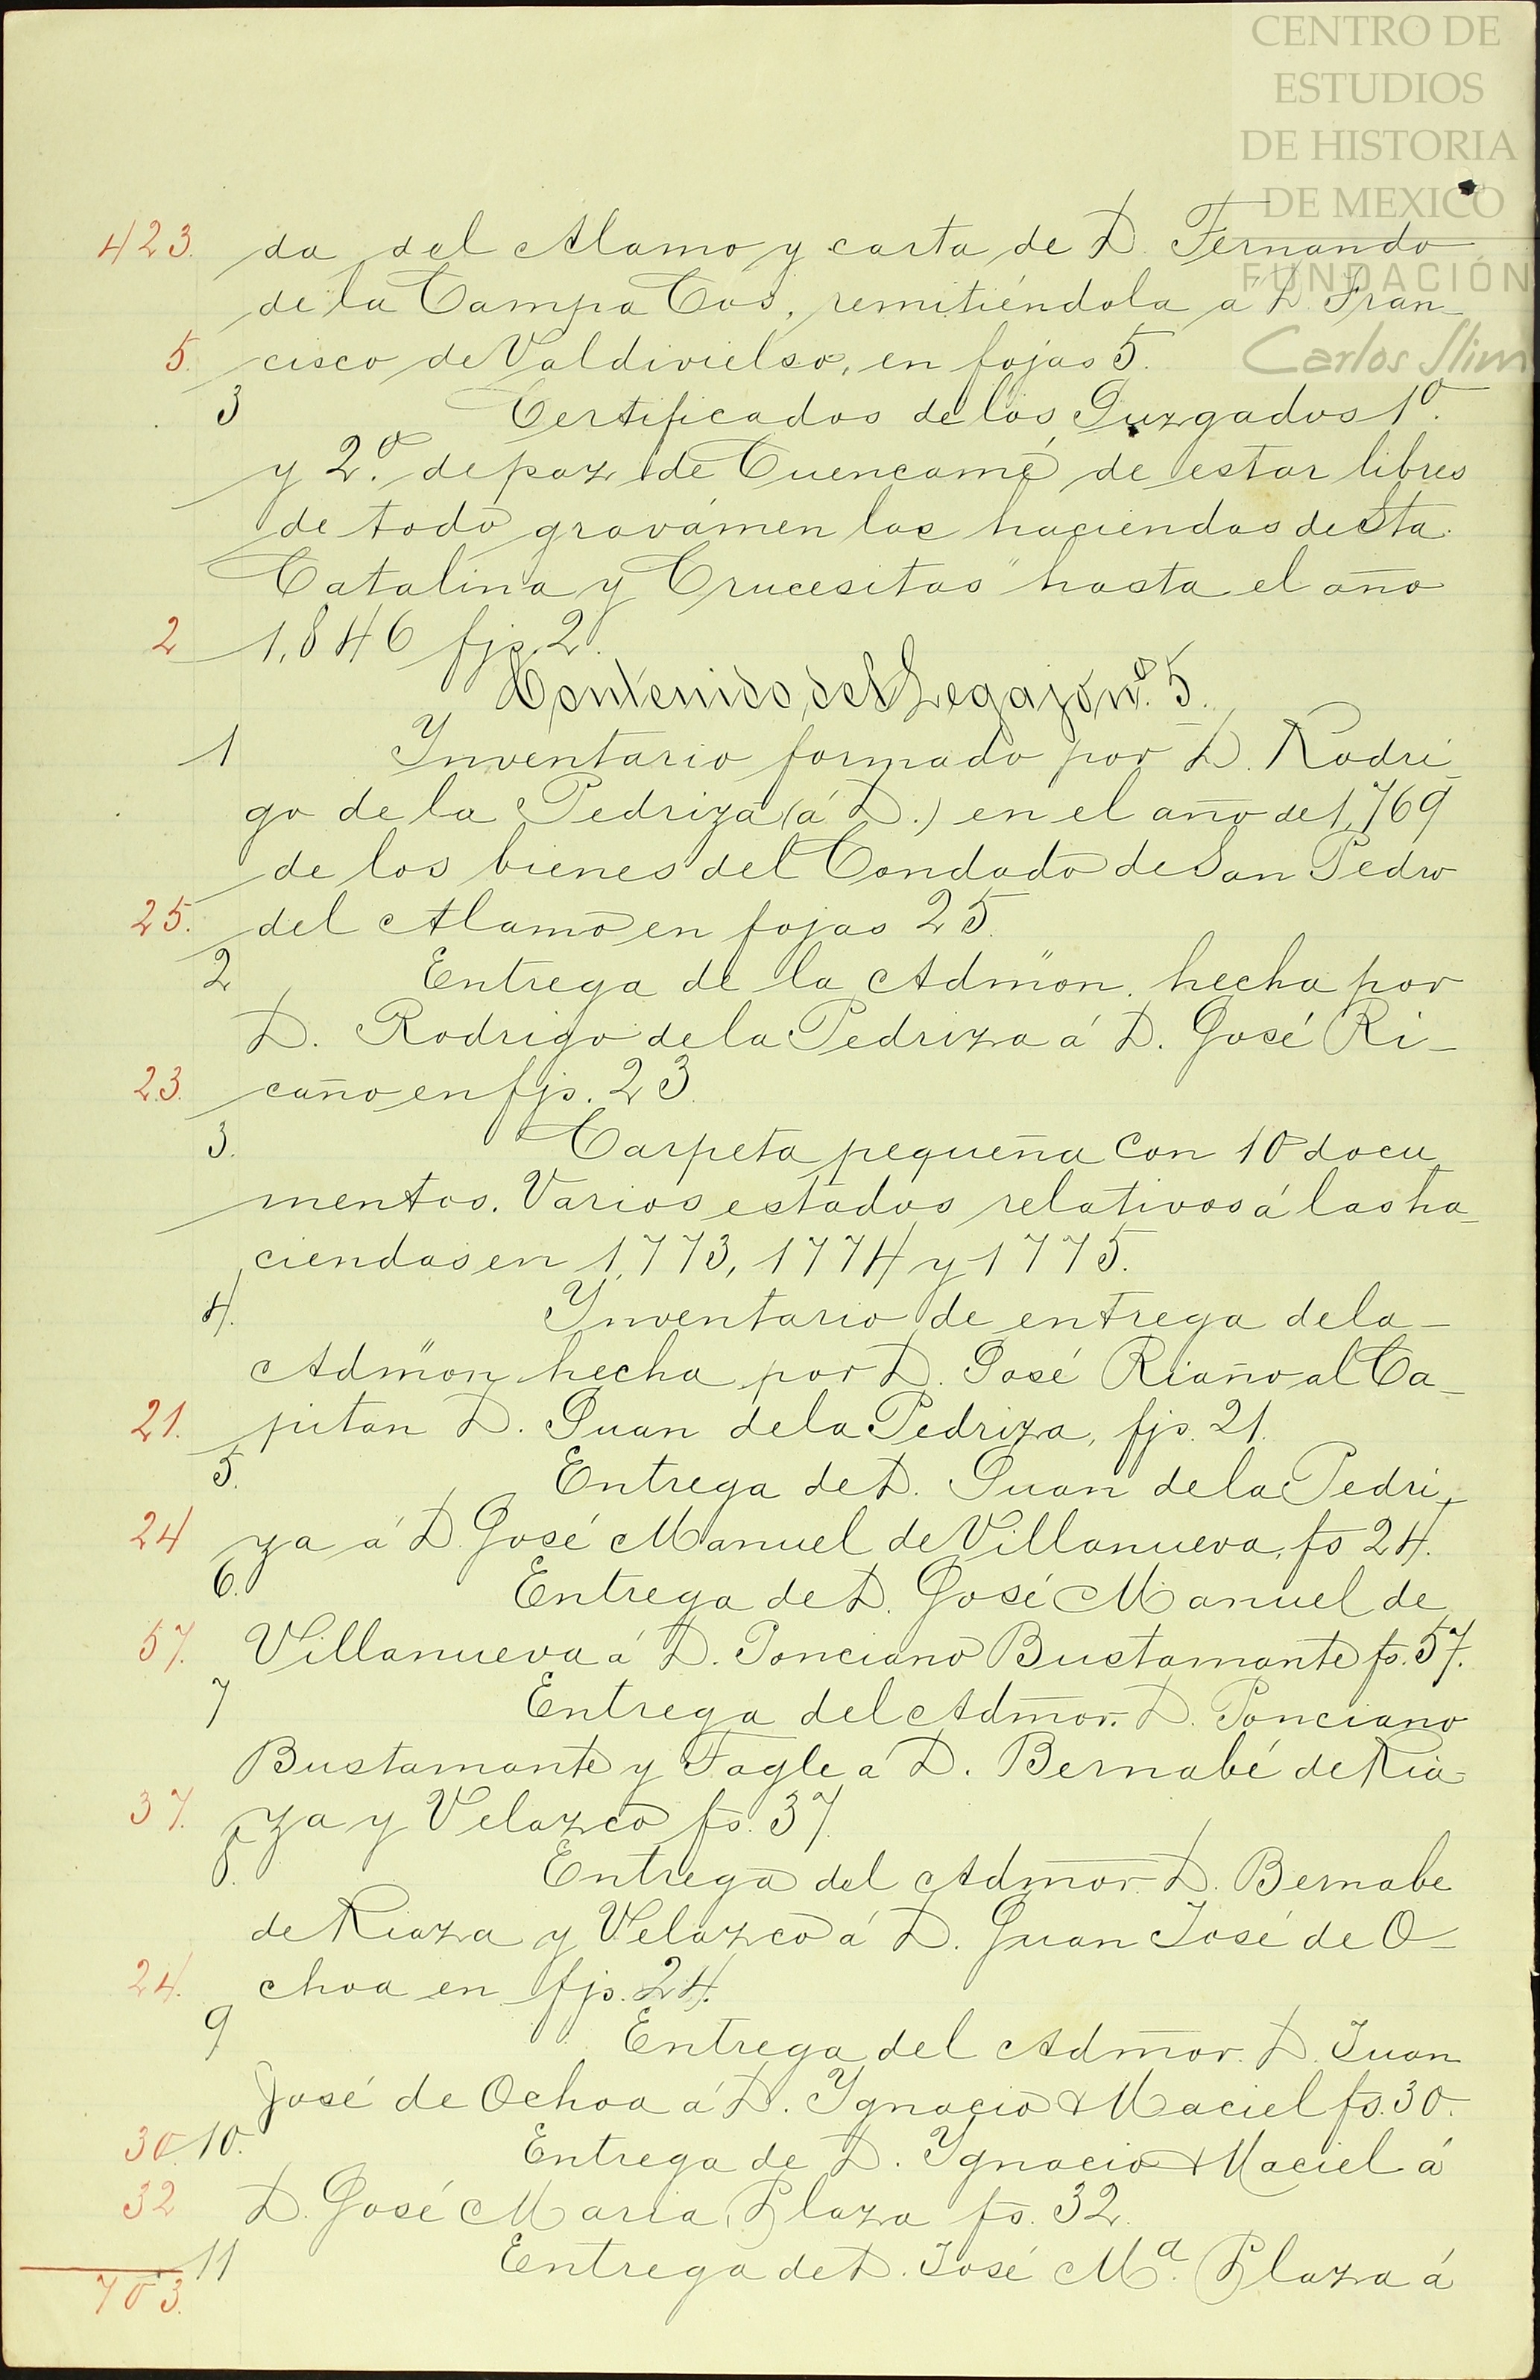 CENTRO DE
ESTUDIOS
DE HISTORIA
DE MEXICO
FUNDACIÓN
Carlos Slim
423. da del Alamo y carta de D. Fernando
de la Campa Cos, remitiéndola a D. Fran-
5. cisco de Valdivielso, en fojas 5.
3 Certificados de los Juzgados 1º.
y 2º. de paz de Cuencamé, de estar libres
de todo gravámen las haciendas de Sta.
Catalina y Crucesitas" hasta el año
2 1,846 fjs. 2.
Contenido del Legajo nº. 5.
1 Ynventario formado por D. Rodri-
go de la Pedriza (á D.) en el año de 1,769
de los bienes del Condado de San Pedro
25. del Alamo en fojas 25.
2 Entrega de la Admon. hecha por
D. Rodrigo de la Pedriza á D. José Ri-
23. caño en fjs. 23.
3. Carpeta pequeña con 10 docu
mentos. Varios estados relativos á las ha-
ciendas en 1,773, 1774 y 1775.
4. Ynventario de entrega de la-
Admon hecha por D. José Riaño al Ca-
21. pitan D. Juan de la Pedriza, fjs. 21.
5. Entrega de D. Juan de la Pedri-
24 za á D. José Manuel de Villanueva, fs 24.
6. Entrega de D. José Manuel de
57. Villanueva á D. Ponciano Bustamante fs. 57.
7 Entrega del Admor. D. Ponciano
Bustamante y Tagle á D. Bernabé de Ria-
37. za y Velazco fs. 37.
8. Entrega del Admor. D. Bernabe
de Riaza y Velazco á D. Juan José de O-
24. choa en fjs. 24.
9 Entrega del Admor. D. Juan
José de Ochoa á D. Ygnacio Maciel fs. 30.
30. 10. Entrega de D. Ygnacio Maciel á
32 D. José Maria Plaza fs. 32.
11 Entrega de D. José Mª. Plaza á
703.